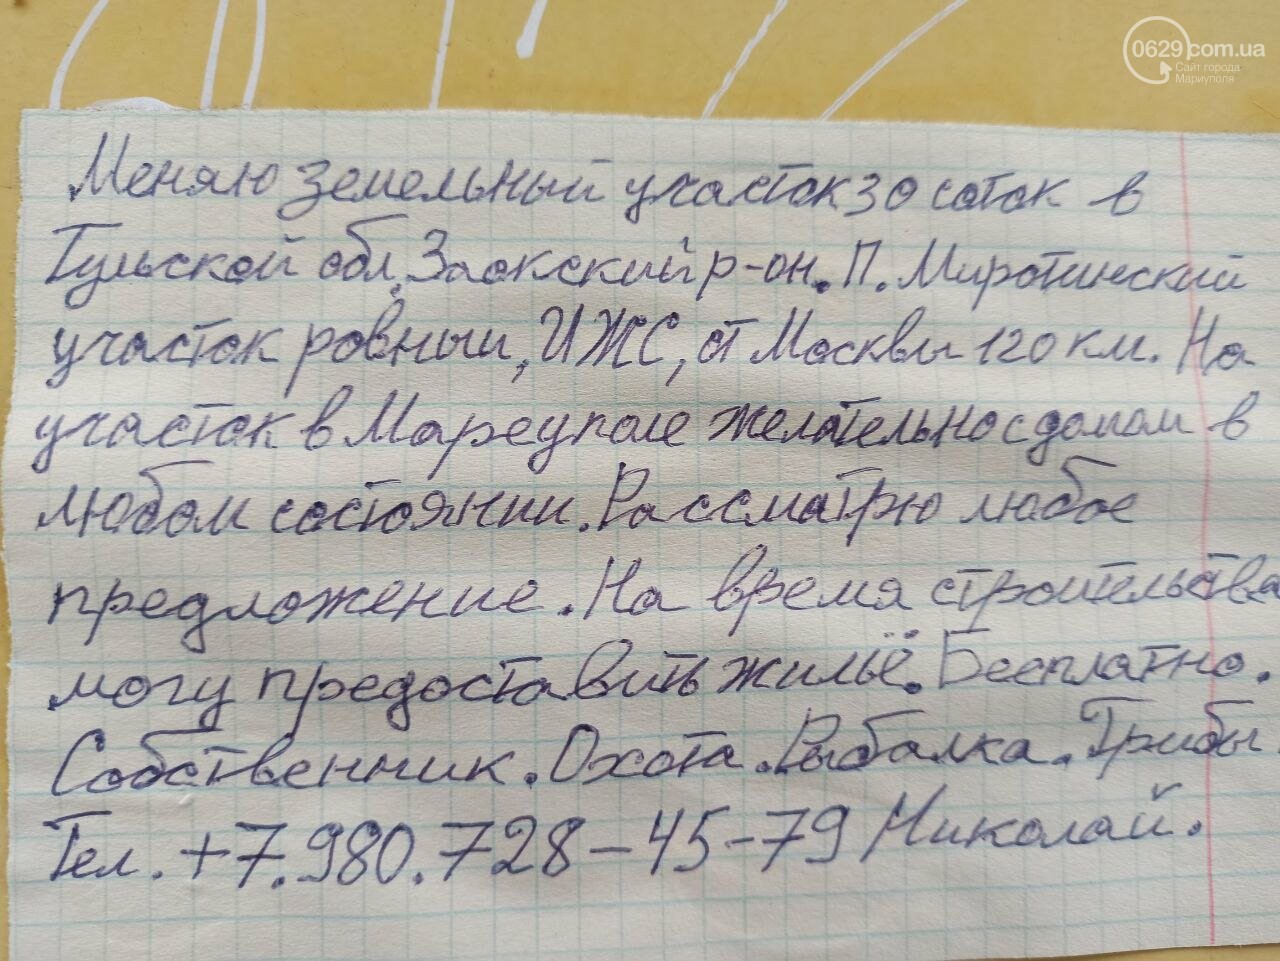 0629.com.ua
Сайт города
Мариуполя
Меняю земельный участок 30 соток в
Тульской обл. Заокский р-он. П. Миротинский
участок ровный, ИЖС, от Москвы 120 км. На
участок в Мареуполе желательно с домом в
любом состоянии. Рассматрю любое
предложение. На время строительства
могу предоставить жильё. Бесплатно.
Собственник. Охота. Рыбалка. Грибы.
Тел. +7.980.728-45-79 Николай.